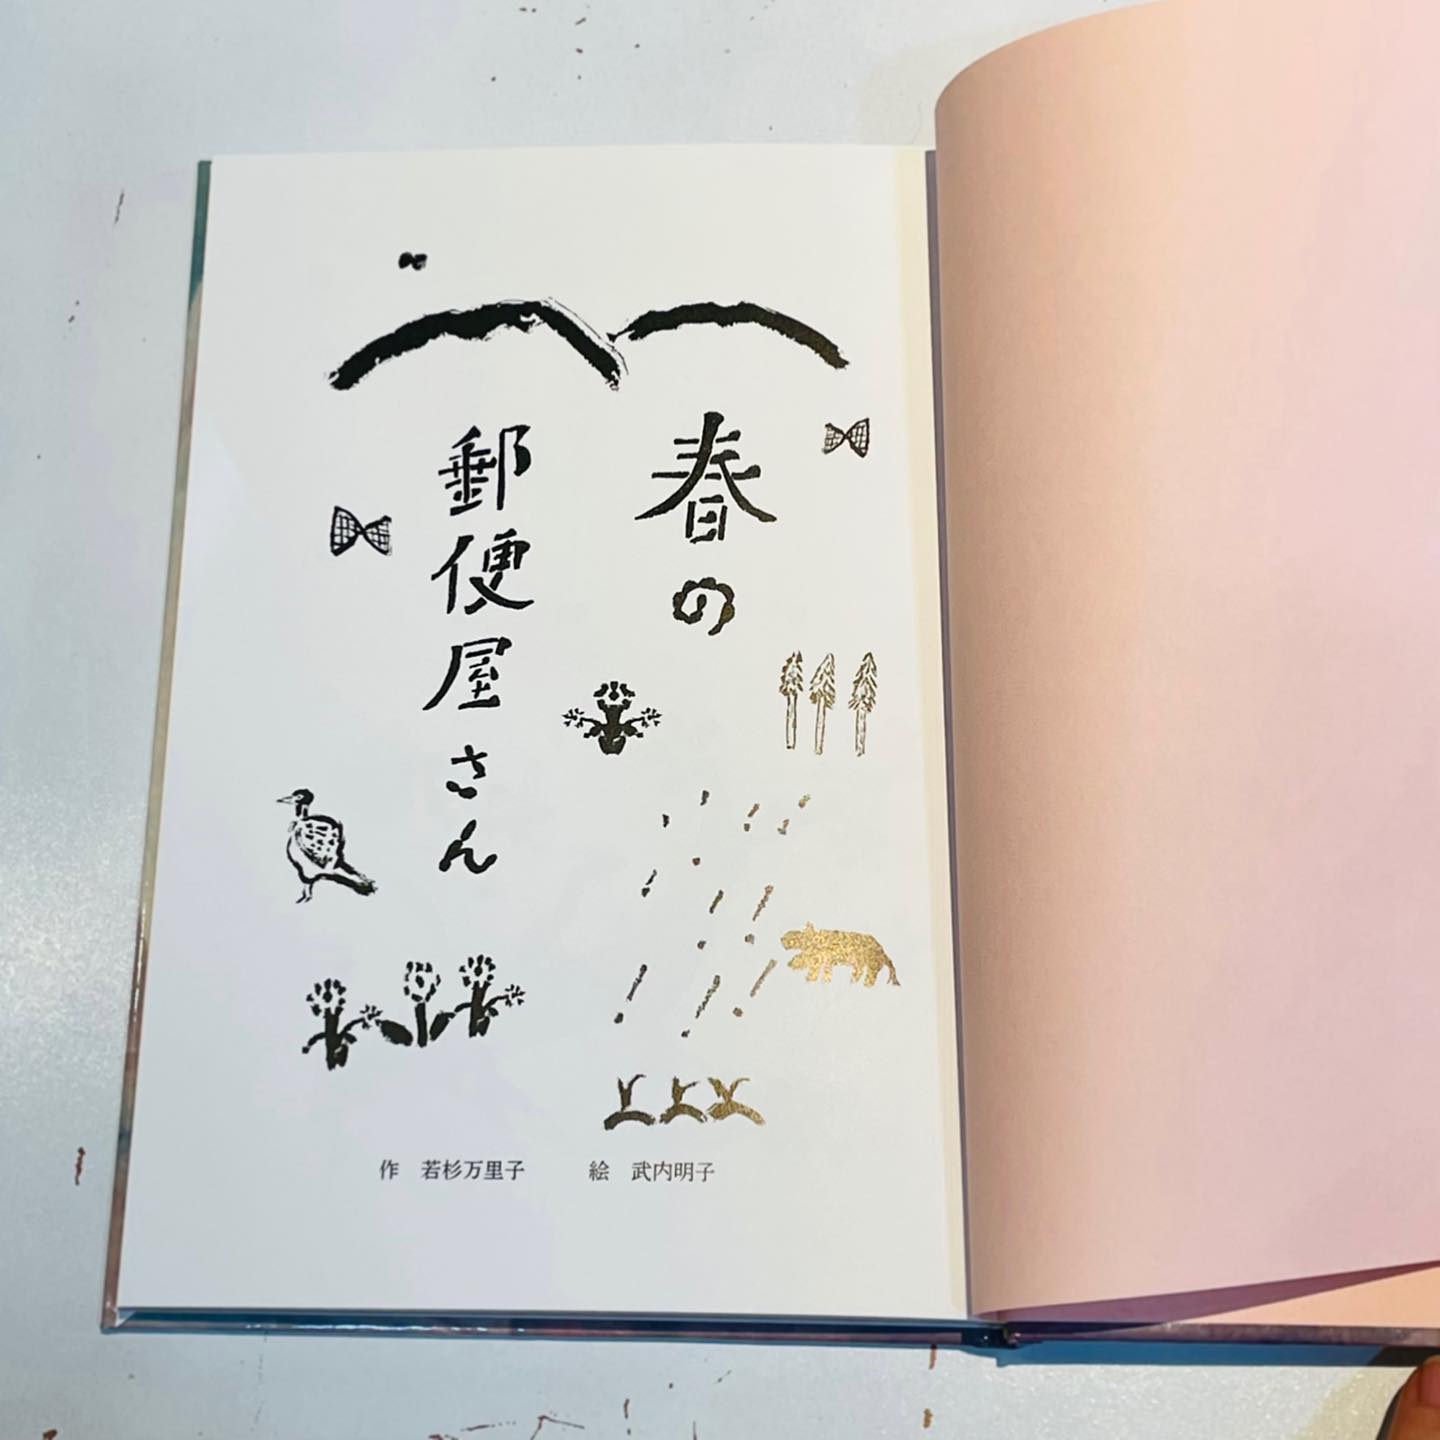 春の
郵便屋さん
作 若杉万里子 絵 武内明子